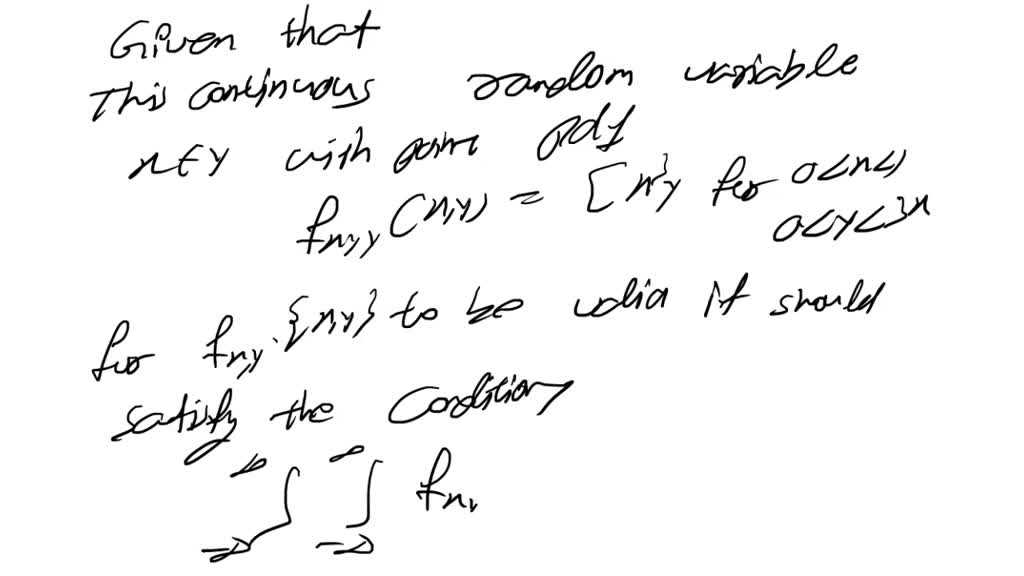 Given that
This continuous random variable
x & y with joint pdf
f_{x,y}(x,y) = [x^3y for 0<x<1
0<y<3x
for f_{x,y}.{x,y} to be valid it should
satisfy the condition
∞ ∞
∫ ∫ f_{x,
-∞ -∞